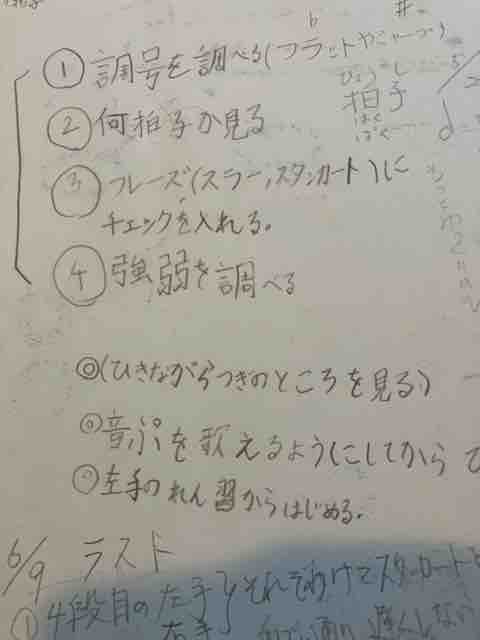 b #
① 調号を調べる(フラットやシャープ)
ひょうし
拍子
はく
ぱく
② 何拍子か見る
③ フレーズ(スラー,スタンカート)に
チェックを入れる。
④ 強弱を調べる
◎(ひきながらつぎのところを見る)
◎音ぷを歌えるようにしてから ひ
◎左手のれん習からはじめる。
6/9 ラスト
① 4段目の左手
右手
それぞれわけてスタンカート